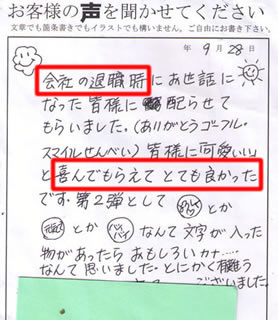 お客様の声を聞かせてください
文章でも箇条書きでもイラストでも構いません。ご自由にお書き下さい。
年 9月 28日
会社の退職時にお世話に
なった皆様に 配らせて
もらいました。(ありがとうゴーフル・
スマイルせんべい) 皆様に可愛いい
と喜んでもらえてとても良かった
です。第2弾として
とか とか なんて文字が入った
物があったらおもしろいカナ……
なんて思いました。とにかく
ございました